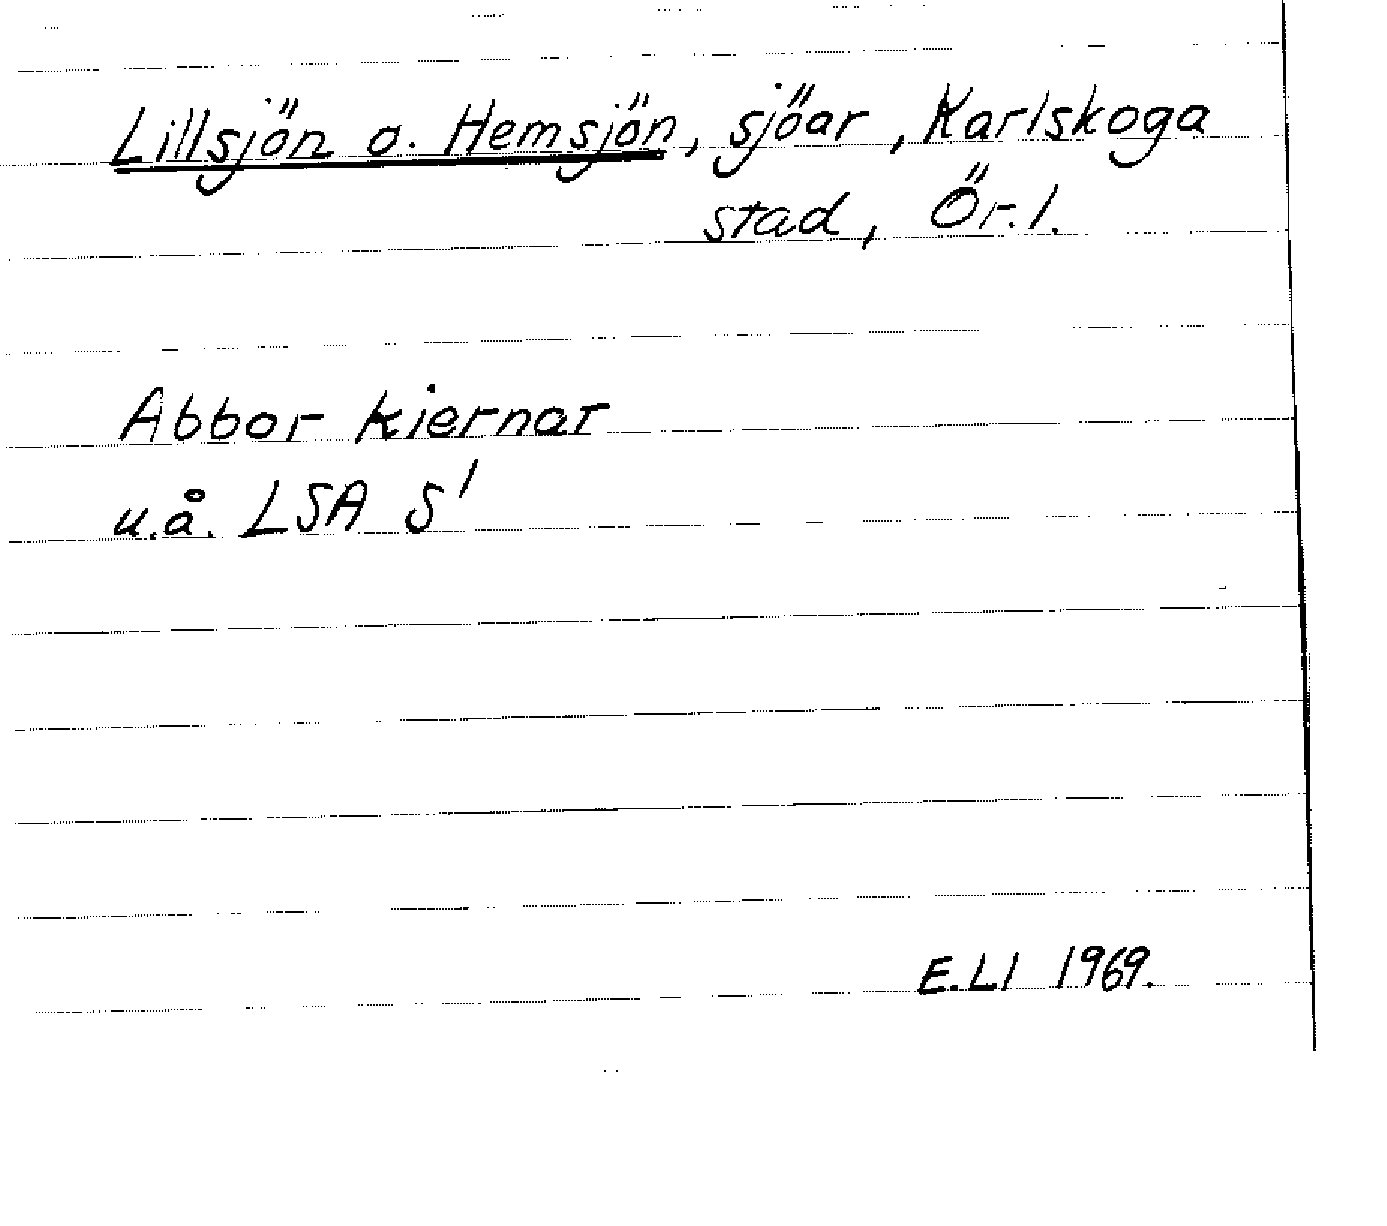 Lillsjön o. Hemsjön, sjöar, Karlskoga
stad, Ör. l.
Abbor kiernar
u.å. LSA S1
E.Ll 1969.